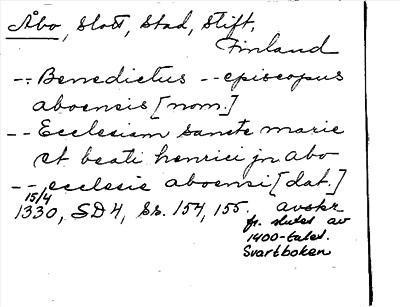 Åbo, slott, stad, stift,
Finland
--: Benedictus -- episcopus
aboensis [nom.]
-- Ecclesiam sancte marie
et beati henrici jn abo
-- ecclesie aboensi [dat.]
15/4
1330, SD 4, ss. 154, 155. avskr
fr. slutet av
1400-talet.
Svartboken